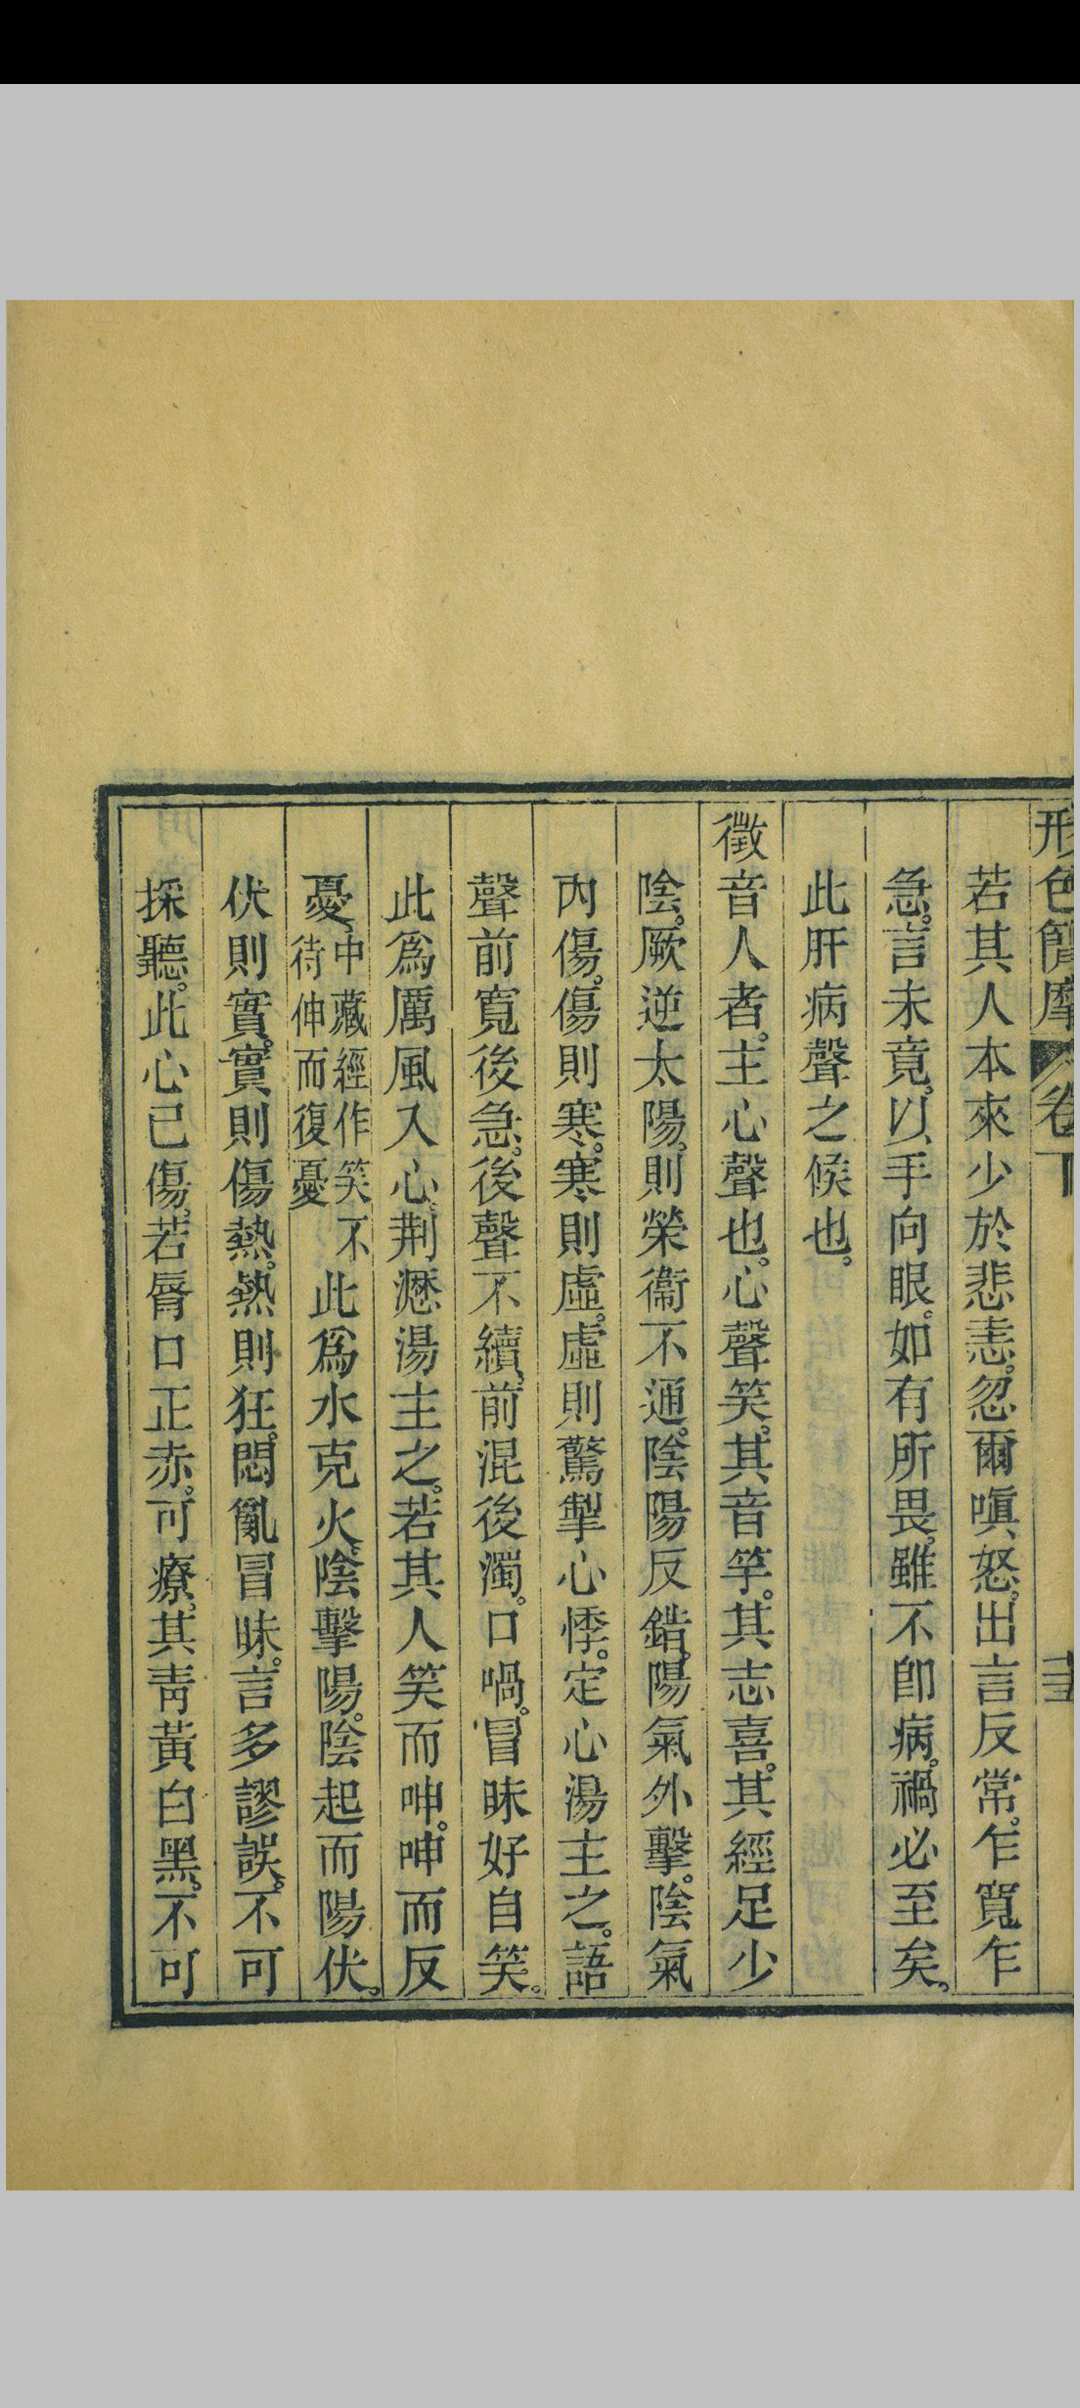 形色簡摩 卷下
若其人本來少於悲恚。忽爾嗔怒。出言反常。乍寬乍
急。言未竟。以手向眼。如有所畏。雖不卽病。禍必至矣。
此肝病聲之候也。
徵音人者。主心聲也。心聲笑。其音竽。其志喜。其經足少
陰。厥逆太陽。則榮衞不通。陰陽反錯。陽氣外擊。陰氣
內傷。傷則寒。寒則虛。虛則驚掣心悸。定心湯主之。語
聲前寬後急。後聲不續。前混後濁。口喎。冒昧好自笑。
此爲厲風入心。荆瀝湯主之。若其人笑而呻。呻而反
憂、中藏經作笑不
待伸而復憂
此爲水克火。陰擊陽。陰起而陽伏。
伏則實。實則傷熱。熱則狂。悶亂冒昧。言多謬誤。不可
採聽。此心已傷。若脣口正赤。可療。其靑黃白黑。不可